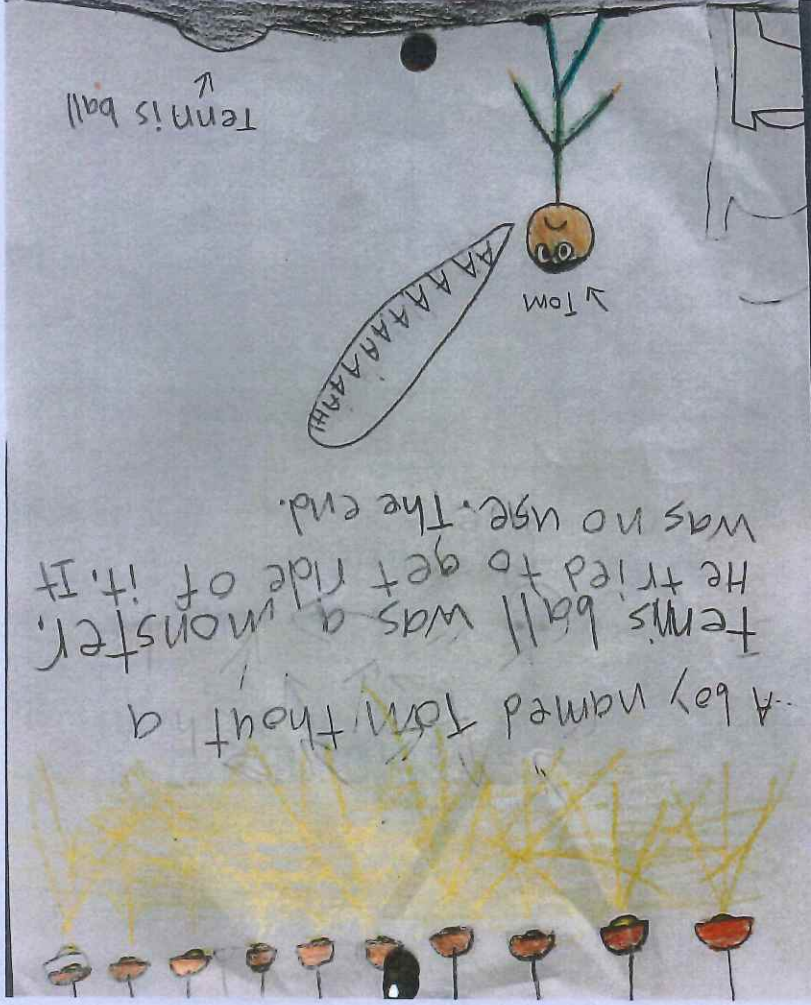 A boy named Tom thout a
tennis ball was a monster.
He tried to get ride of it. It
was no use. The end.
AAAAAAAAAAAH!!
Tom
Tennis ball